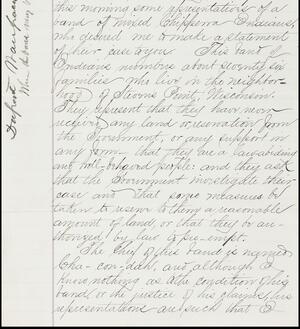 this morning some representatives of a
band of mixed Chippewa Indians,
who desired me to make a statement
of their case to you. This band of
Indians numbers about seventy six
families who live in the neighbor-
hood of Stevens Point, Wisconsin.
They represent that they have never
received any land or reservation from
the Government, or any support in
any form – that they are a law-abiding
and well-behaved people: and they ask
that the Government investigate their
case and that some measures be
taken to reserve to them a reasonable
amount of land, or that they be au-
thorized by law to pre-empt.
The Chief of this band is named
Cha-con-dah, and although I
know nothing as to the condition of his
band, or the justice of his claims, his
representations are such that I